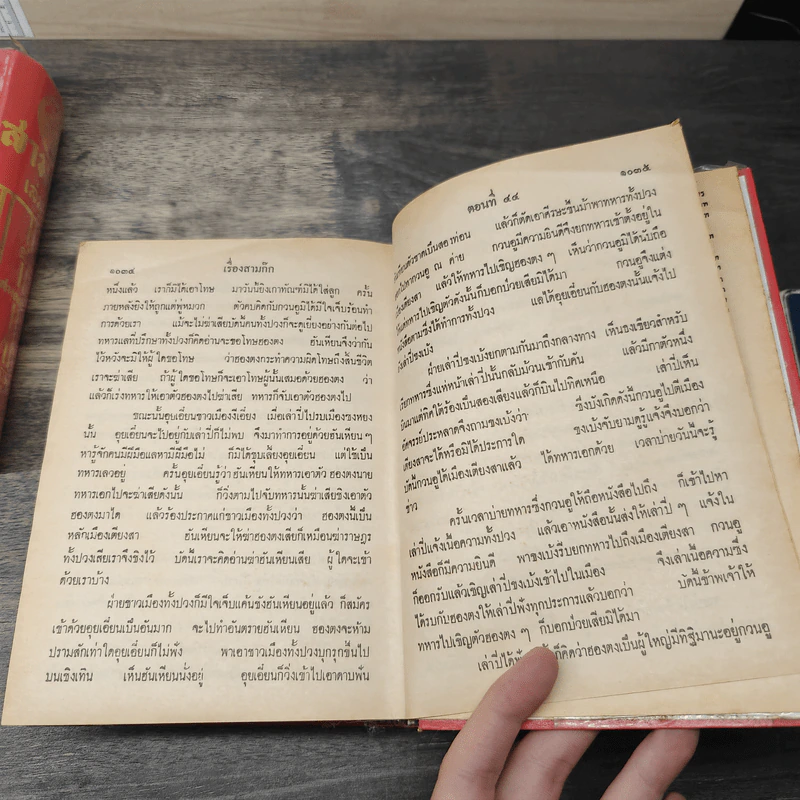 สาม
๑๐๓๔ เรื่องสามก๊ก
หนึ่งแล้ว เราก็มิได้เอาโทษ มาวันนี้ยิงเกาทัณฑ์มิได้ใส่ลูก ครั้น
ภายหลังยิงให้ถูกแต่พู่หมวก ตัวคบคิดกับกวนอูมิได้มีใจเจ็บร้อนทำ
การด้วยเรา แม้จะไม่ฆ่าเสียบัดนี้คนทั้งปวงก็จะดูเยี่ยงอย่างกันต่อไป
ทหารแลที่ปรึกษาทั้งปวงก็คิดอ่านจะขอโทษฮองตง ฮันเหียนจึงว่ากัน
ไว้หวังจะมิให้ผู้ใดขอโทษ ว่าฮองตงกระทำความผิดโทษถึงสิ้นชีวิต
เราจะฆ่าเสีย ถ้าผู้ใดขอโทษก็จะเอาโทษผู้นั้นเสมอด้วยฮองตง ว่า
แล้วก็เร่งทหารให้เอาตัวฮองตงไปฆ่าเสีย ทหารก็จับเอาตัวฮองตงไป
ขณะนั้นอุยเอี๋ยนชาวเมืองงี่เอี๋ยง เมื่อเล่าปี่ไปรบเมืองซงหยง
นั้น อุยเอี๋ยนจะไปอยู่กับเล่าปี่ก็ไม่พบ จึงมาทำการอยู่ด้วยฮันเหียน ๆ
หารู้จักคนมีฝีมือแลหามีฝีมือไม่ ก็มิได้ชุบเลี้ยงอุยเอี๋ยน แต่ใช้เป็น
ทหารเลวอยู่ ครั้นอุยเอี๋ยนรู้ว่าฮันเหียนให้ทหารเอาตัวฮองตงนาย
ทหารเอกไปจะฆ่าเสียดังนั้น ก็วิ่งตามไปจับทหารนั้นฆ่าเสียชิงเอาตัว
ฮองตงมาได้ แล้วร้องประกาศแก่ชาวเมืองทั้งปวงว่า ฮองตงนี้เป็น
หลักเมืองเตียงสา ฮันเหียนจะให้ฆ่าฮองตงเสียก็เหมือนฆ่าราษฎร
ทั้งปวงเสียเราจึงชิงไว้ บัดนี้เราจะคิดอ่านฆ่าฮันเหียนเสีย ผู้ใดจะเข้า
ด้วยเราบ้าง
ฝ่ายชาวเมืองทั้งปวงก็มีใจเจ็บแค้นชังฮันเหียนอยู่แล้ว ก็สมัคร
เข้าด้วยอุยเอี๋ยนเป็นอันมาก จะไปทำอันตรายฮันเหียน ฮองตงจะห้าม
ปรามสักเท่าใดอุยเอี๋ยนก็ไม่ฟัง พาเอาชาวเมืองทั้งปวงบุกรุกขึ้นไป
บนเชิงเทิน เห็นฮันเหียนนั่งอยู่ อุยเอี๋ยนก็วิ่งเข้าไปเอาดาบฟัน
ตอนที่ ๔๔ ๑๐๓๕
ตัวขาดเป็นสองท่อน แล้วก็ตัดเอาศีรษะขึ้นม้าพาทหารทั้งปวง
ไปหากวนอู ณ ค่าย กวนอูมีความยินดีจึงยกทหารเข้าตั้งอยู่ใน
เตียงสา แล้วให้ทหารไปเชิญฮองตง ๆ เห็นว่ากวนอูมิได้นับถือ
ทหารไปเชิญตัวดังนั้นก็บอกป่วยเสียมิได้มา กวนอูจึงแต่ง
หนังสือตามซึ่งได้ทำการทั้งปวง แลได้อุยเอี๋ยนกับฮองตงนั้นแจ้งไป
เล่าปี่ขงเบ้ง
ฝ่ายเล่าปี่ขงเบ้งยกตามกันมาถึงกลางทาง เห็นธงเขียวสำหรับ
ทหารซึ่งแห่หน้าเล่าปี่นั้นกลับม้วนเข้ากับคัน แล้วมีกาตัวหนึ่ง
บินมาแต่ทิศใต้ร้องเป็นสองเสียงแล้วก็บินไปทิศเหนือ เล่าปี่เห็น
อัศจรรย์ประหลาดจึงถามขงเบ้งว่า ซึ่งบังเกิดดังนี้กวนอูไปตีเมือง
เตียงสาจะได้หรือมิได้ประการใด ขงเบ้งจับยามดูรู้แจ้งจึงบอกว่า
บัดนี้กวนอูได้เมืองเตียงสาแล้ว ได้ทหารเอกด้วย เวลาบ่ายวันนี้จะรู้
ข่าว
ครั้นเวลาบ่ายทหารซึ่งกวนอูให้ถือหนังสือไปถึง ก็เข้าไปหา
เล่าปี่แจ้งเนื้อความทั้งปวง แล้วเอาหนังสือนั้นส่งให้เล่าปี่ ๆ แจ้งใน
หนังสือก็มีความยินดี พาขงเบ้งรีบยกทหารไปถึงเมืองเตียงสา กวนอู
ก็ออกรับแล้วเชิญเล่าปี่ขงเบ้งเข้าไปในเมือง จึงเล่าเนื้อความซึ่ง
ได้รบกับฮองตงให้เล่าปี่ฟังทุกประการแล้วบอกว่า บัดนี้ข้าพเจ้าให้
ทหารไปเชิญตัวฮองตง ๆ ก็บอกป่วยเสียมิได้มา
เล่าปี่ได้ ก็คิดว่าฮองตงเป็นผู้ใหญ่มีทิฐิมานะอยู่กวนอู